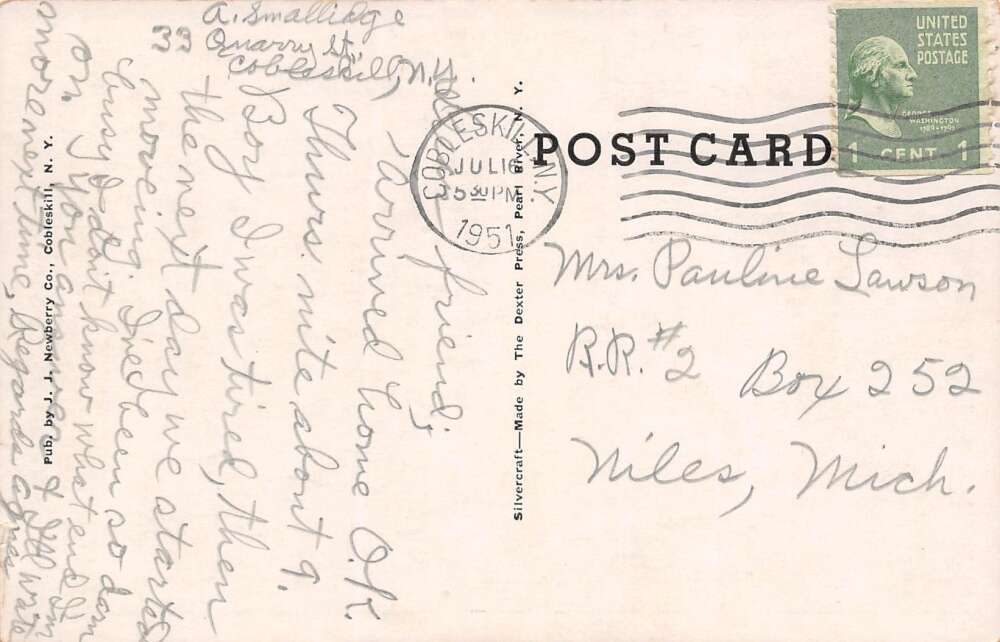 A. Smallidge
33 Quarry St.
Cobleskill, N.Y.
friend;
Arrived home O.K.
Thurs. nite about 9.
Boy I was tired, then
the next day we started
moveing. I've been so darn
busy I don't know what end I'm
on. You answer & I'll write
more next time, Regards Agnes
Pub. by J. J. Newberry Co., Cobleskill, N. Y.
Silvercraft—Made by The Dexter Press, Pearl River, N. Y.
POST CARD
COBLESKILL N.Y.
JUL 16
5 30 PM
1951
UNITED
STATES
POSTAGE
GEORGE
WASHINGTON
1789-1797
1 CENT 1
Mrs. Pauline Lawson
R.R. #2 Box 252
Niles, Mich.